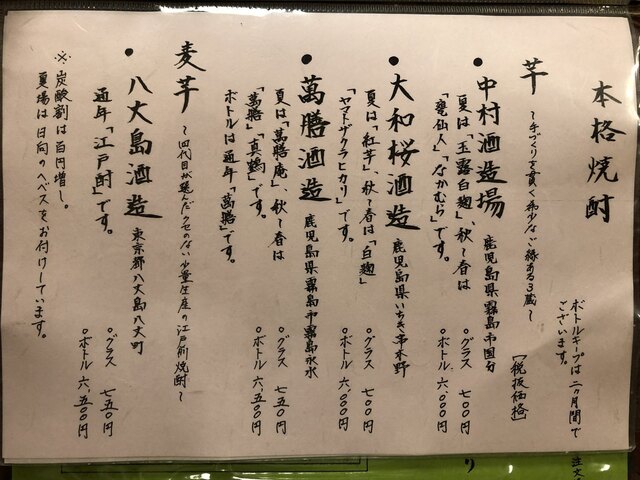 本格焼酎
ボトルキープは二ヶ月間で
ございます。
[税抜価格]
芋 〜手づくりを貫く希少なご縁ある3蔵〜
・中村酒造場 鹿児島県霧島市国分
夏は「玉露白麹」、秋〜春は
「竜仙人」「なかむら」です。
○グラス 七〇〇円
○ボトル 六、〇〇〇円
・大和桜酒造 鹿児島県いちき串木野
夏は「紅芋」、秋〜春は「白麹」
「ヤマトザクラヒカリ」です。
○グラス 七〇〇円
○ボトル 六、〇〇〇円
・萬膳酒造 鹿児島県霧島市霧島永水
夏は「萬膳庵」、秋〜春は
「萬膳」「真鶴」です。
ボトルは通年「萬膳」です。
○グラス 七五〇円
○ボトル 六、五〇〇円
麦芋 〜四代目が選んだクセのない少量生産の江戸前焼酎〜
・八丈島酒造 東京都八丈島八丈町
通年「江戸酎」です。
○グラス 七五〇円
○ボトル 六、五〇〇円
※炭酸割は百円増し。
夏場は日向のヘベスをお付けしています。
注文
り